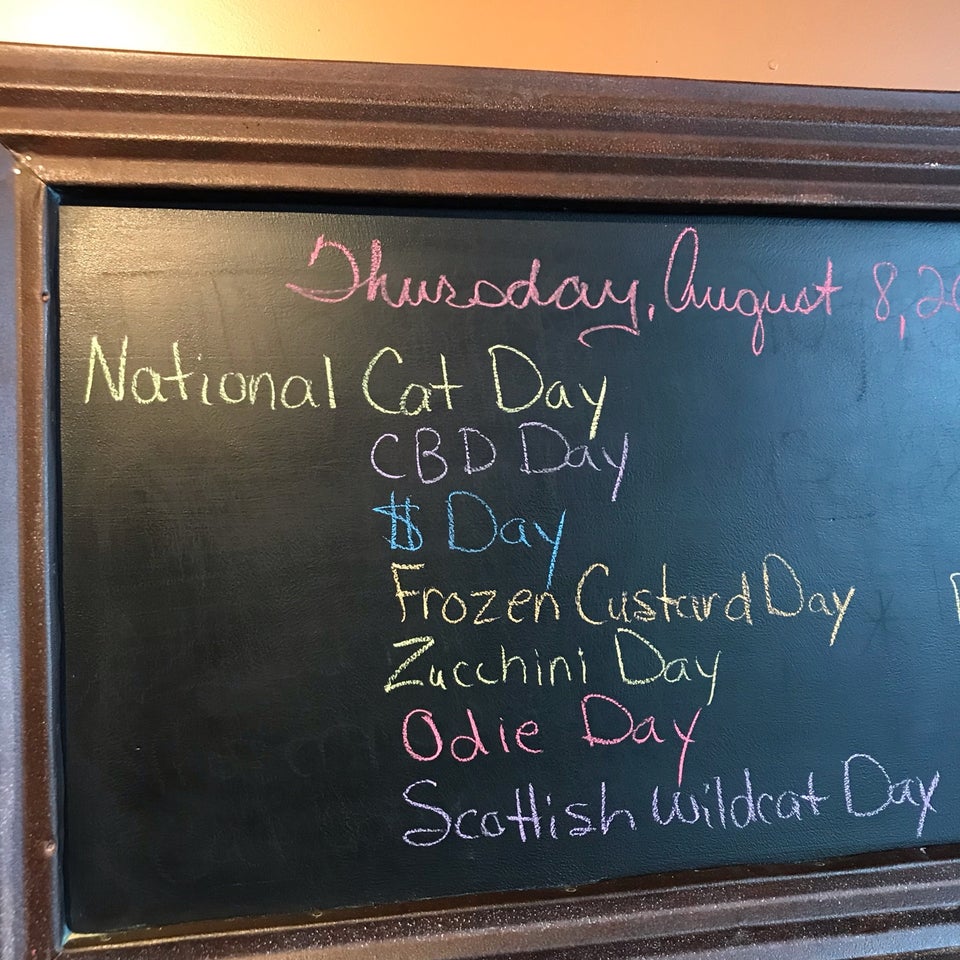 Thursday, August 8, 20
National Cat Day
CBD Day
$ Day
Frozen Custard Day
Zucchini Day
Odie Day
Scottish Wildcat Day